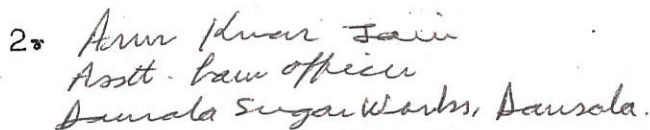 2. Arun Kumar Jain
Asstt. Law Officer
Daurala Sugar Works, Daurala.